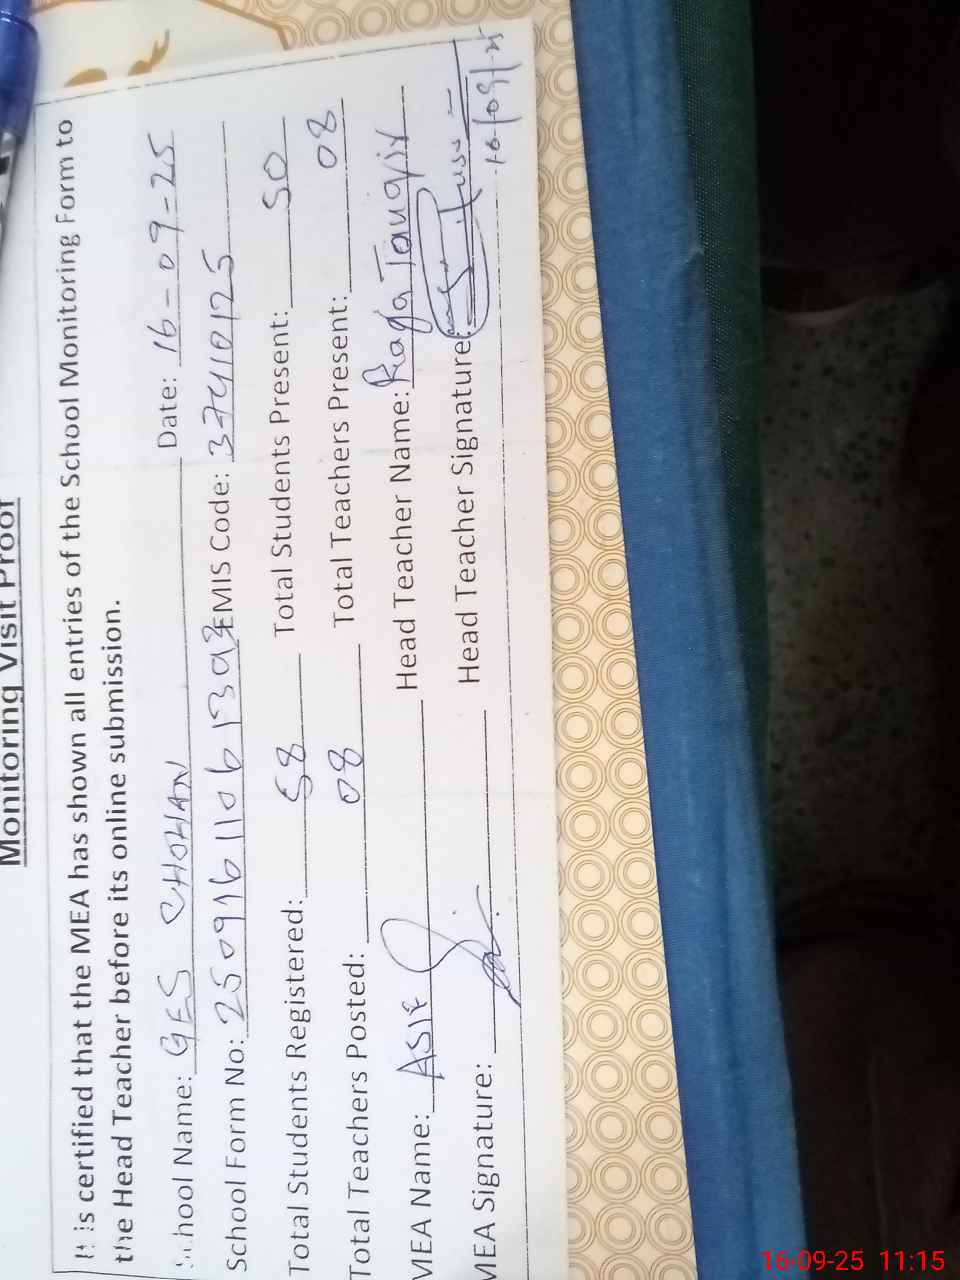 Monitoring Visit Proof
It is certified that the MEA has shown all entries of the School Monitoring Form to
the Head Teacher before its online submission.
School Name: GES CHOHAN Date: 16-09-25
School Form No: 25091611061392 EMIS Code: 37410125
Total Students Registered: 58 Total Students Present: 50
Total Teachers Posted: 08 Total Teachers Present: 08
MEA Name: ASIF Head Teacher Name: Raja Tauqir
MEA Signature: Head Teacher Signature:
16/09/25
16-09-25 11:15